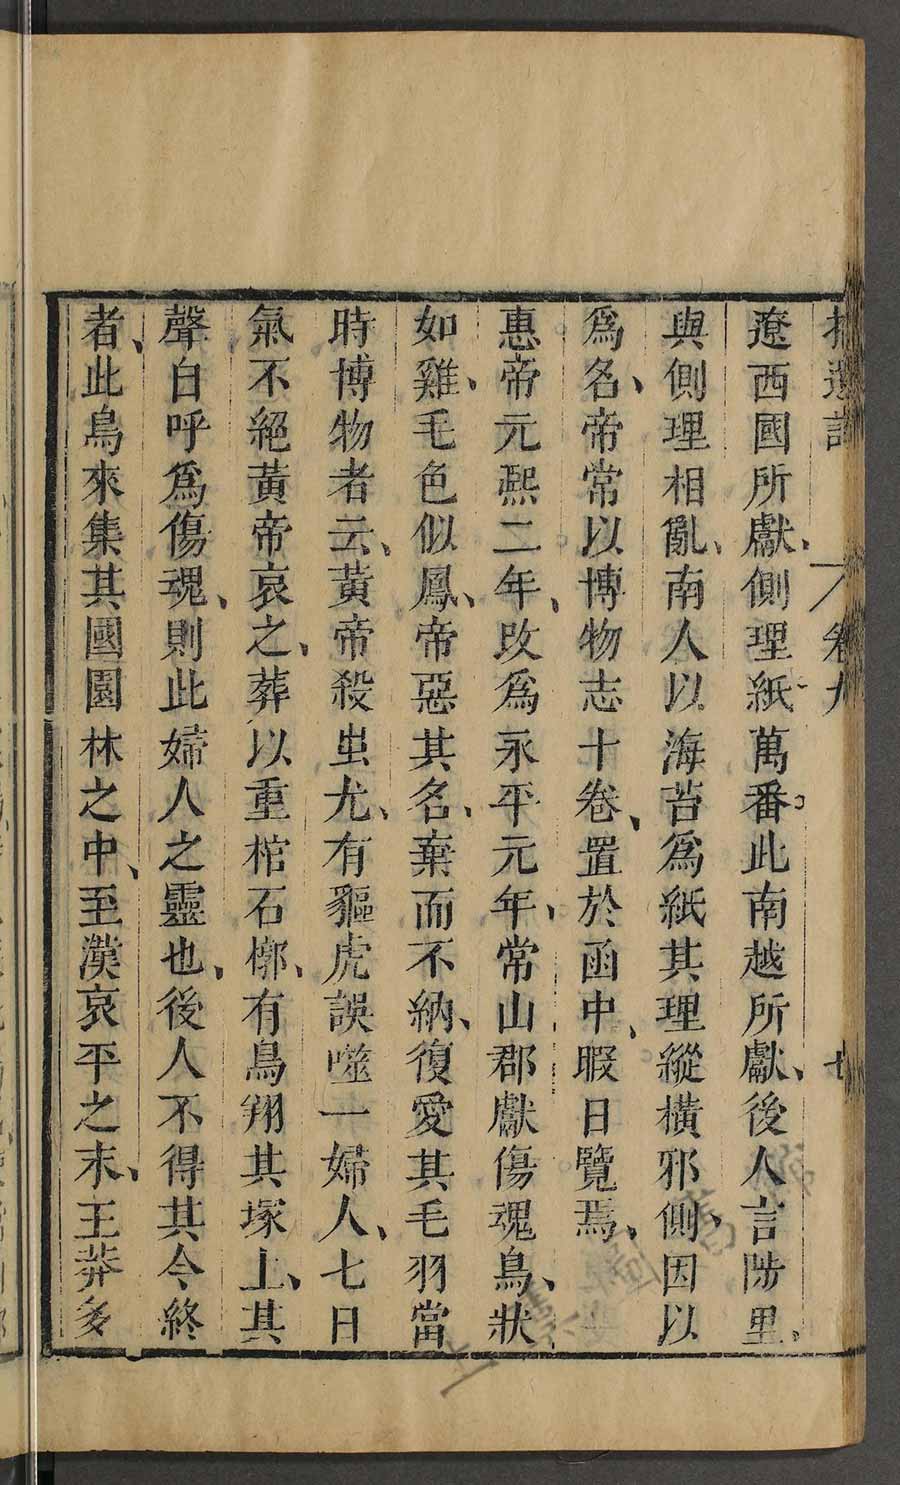 拾遺記 卷九 七
遼西國所獻、側理紙萬番此南越所獻、後人言陟里、
與側理相亂、南人以海苔爲紙其理縱橫邪側、因以
爲名、帝常以博物志十卷、置於函中、暇日覽焉、
惠帝元熙二年、改爲永平元年、常山郡獻傷魂鳥、狀
如雞、毛色似鳳、帝惡其名、棄而不納、復愛其毛羽當
時博物者云、黃帝殺蚩尤、有貙虎誤噬一婦人、七日
氣不絕黃帝哀之、葬以重棺石槨、有鳥翔其塚上、其
聲自呼爲傷魂、則此婦人之靈也、後人不得其令終
者、此鳥來集其國園林之中、至漢哀平之末、王莽多